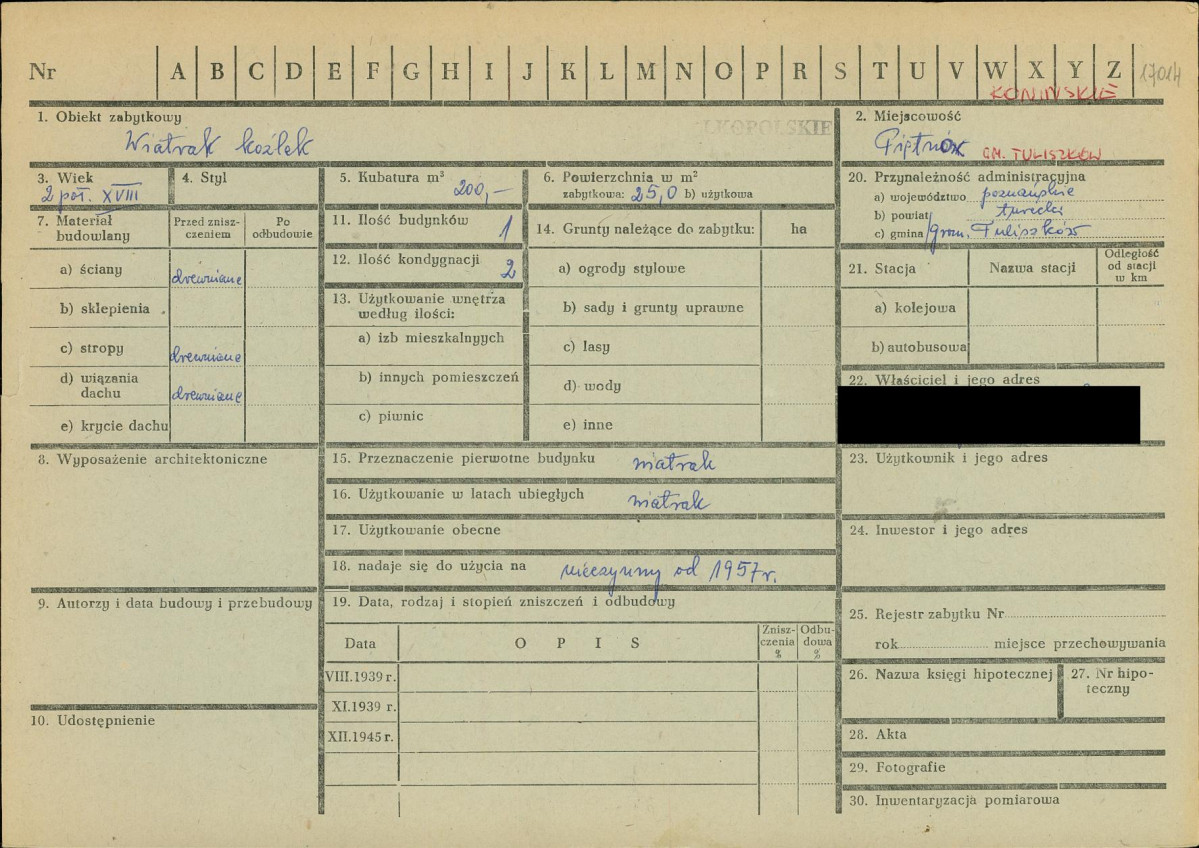 Nr A B C D E F G H I J K L M N O P R S T U V W X Y Z 17014
KONIŃSKIE
1. Obiekt zabytkowy
LKOPOLSKIE
Wiatrak koźlak
2. Miejscowość
GM. TULISZKÓW
3. Wiek
2 poł. XVIII
4. Styl
5. Kubatura m³
200,—
6. Powierzchnia w m²
zabytkowa: 25,0 b) użytkowa
20. Przynależność administracyjna
a) województwo poznańskie
b) powiat turecki
c) gmina/grom. Tuliszków
7. Materiał budowlany
Przed zniszczeniem
Po odbudowie
a) ściany drewniane
b) sklepienia
c) stropy drewniane
d) wiązania dachu drewniane
e) krycie dachu
11. Ilość budynków 1
12. Ilość kondygnacji 2
13. Użytkowanie wnętrza
według ilości:
a) izb mieszkalnyych
b) innych pomieszczeń
c) piwnic
14. Grunty należące do zabytku: ha
a) ogrody stylowe
b) sady i grunty uprawne
c) lasy
d) wody
e) inne
21. Stacja
Nazwa stacji
Odległość
od stacji
w km
a) kolejowa
b) autobusowa
22. Właściciel i jego adres
8. Wyposażenie architektoniczne
15. Przeznaczenie pierwotne budynku wiatrak
16. Użytkowanie w latach ubiegłych wiatrak
17. Użytkowanie obecne
18. nadaje się do użycia na nieczynny od 1957 r.
23. Użytkownik i jego adres
24. Inwestor i jego adres
9. Autorzy i data budowy i przebudowy
19. Data, rodzaj i stopień zniszczeń i odbudowy
Data
O P I S
Zniszczenia %
Odbudowa %
VIII.1939 r.
XI.1939 r.
XII.1945 r.
10. Udostępnienie
25. Rejestr zabytku Nr
rok miejsce przechowywania
26. Nazwa księgi hipotecznej
27. Nr hipoteczny
28. Akta
29. Fotografie
30. Inwentaryzacja pomiarowa